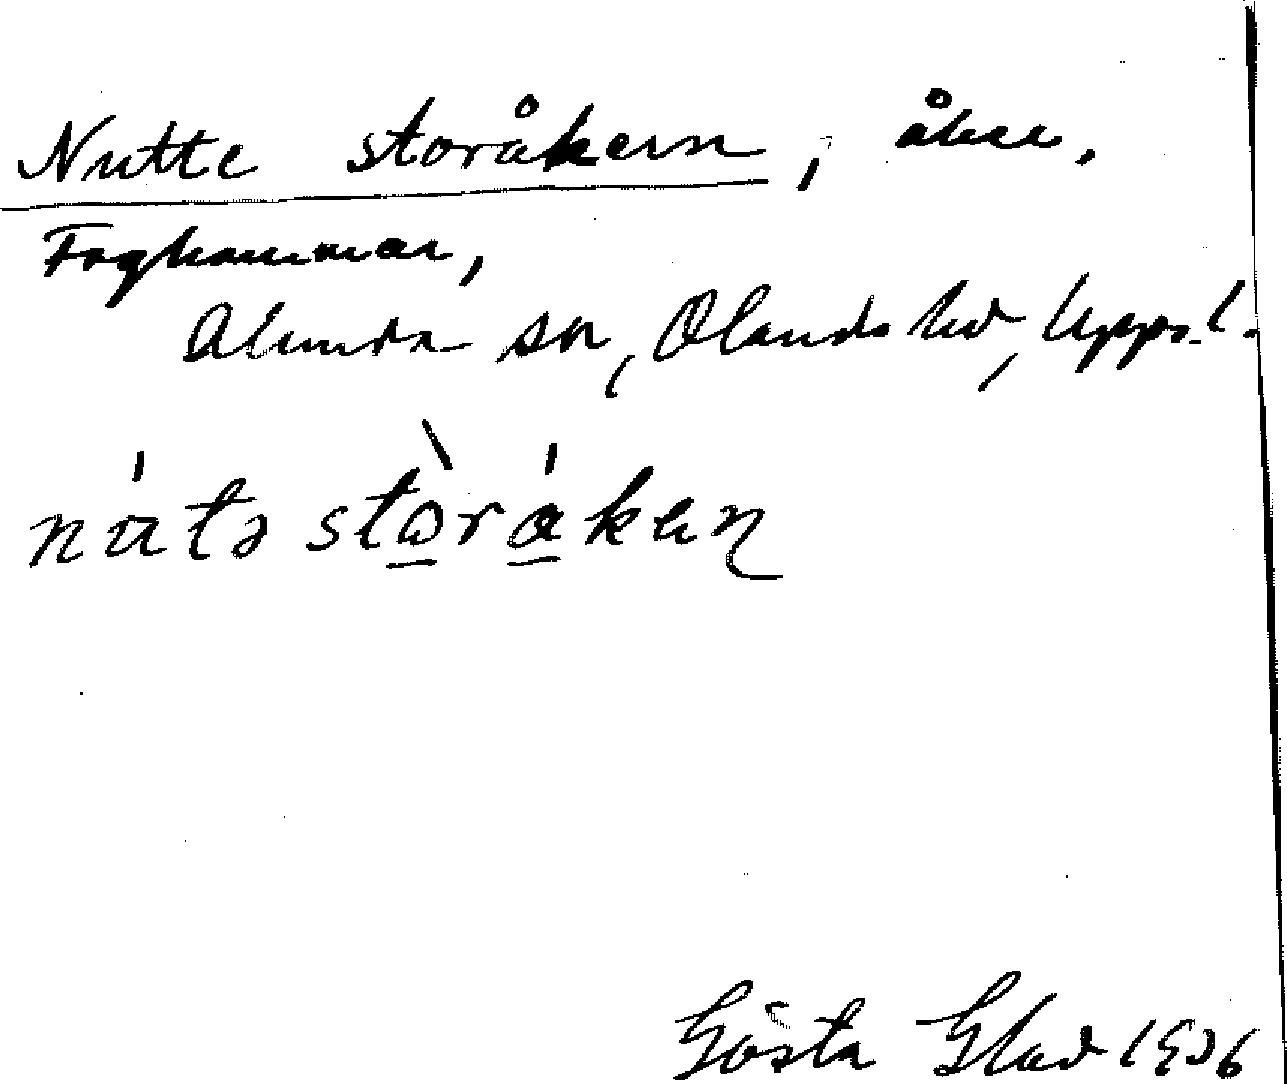 Nutte storåkern, åker.
Foghammar,
Alunda sn, Olands hd, Upps. l.
nútə stòrákeɳ
Gösta Glad 1936